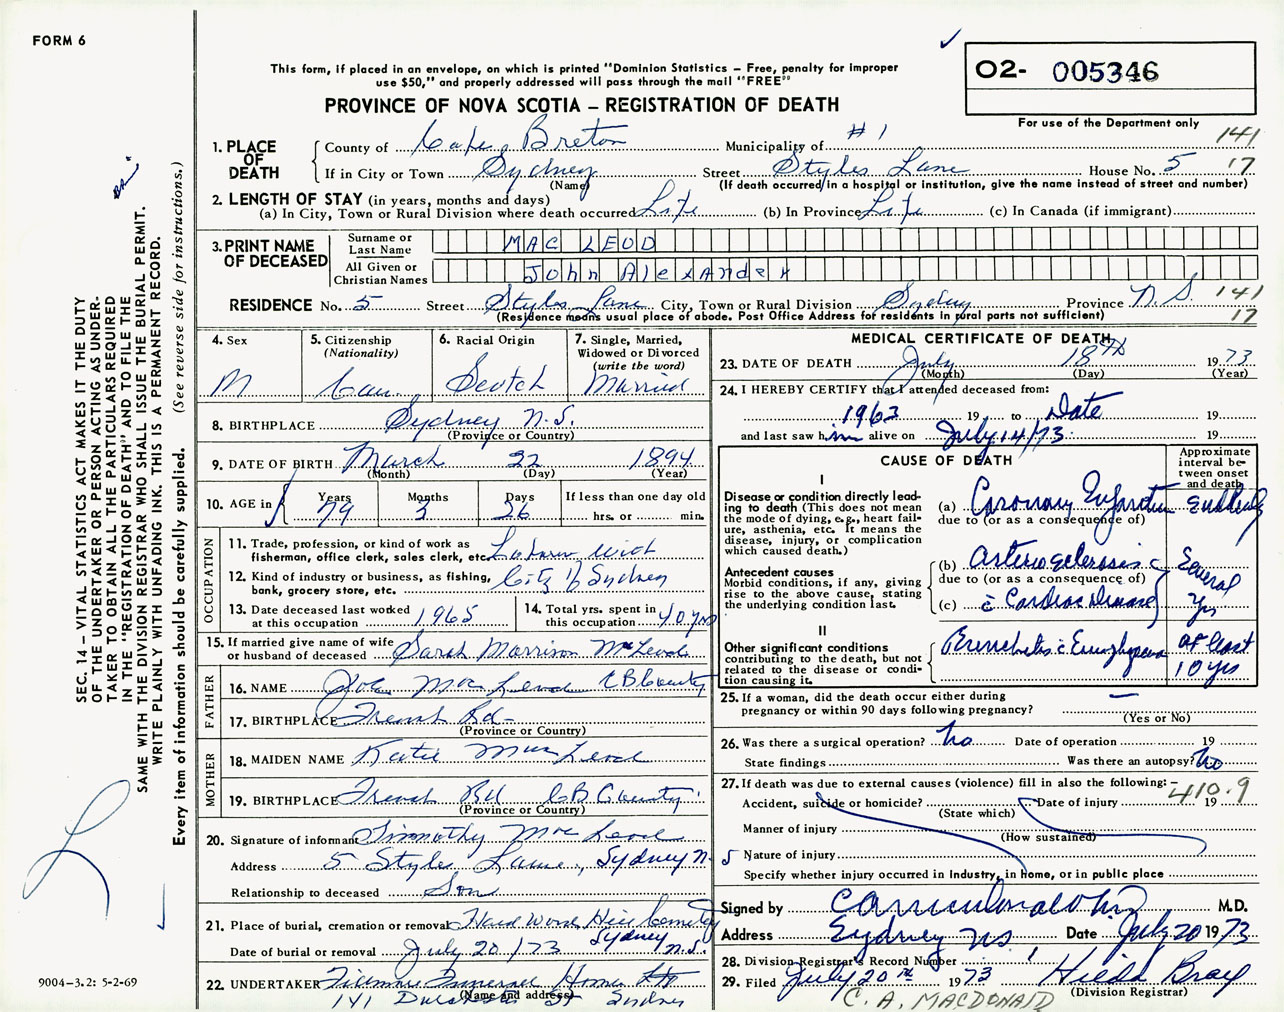 FORM 6
This form, if placed in an envelope, on which is printed "Dominion Statistics – Free, penalty for improper
use $50," and properly addressed will pass through the mail "FREE"
O2- 005346
For use of the Department only
PROVINCE OF NOVA SCOTIA – REGISTRATION OF DEATH
141
17
1. PLACE OF DEATH
County of Cape Breton Municipality of #1
If in City or Town Sydney Street Styles Lane House No. 5
(Name) (If death occurred in a hospital or institution, give the name instead of street and number)
2. LENGTH OF STAY (in years, months and days)
(a) In City, Town or Rural Division where death occurred Life (b) In Province Life (c) In Canada (if immigrant)
3. PRINT NAME OF DECEASED
Surname or Last Name MAC LEOD
All Given or Christian Names John Alexander
RESIDENCE No. 5 Street Styles Lane City, Town or Rural Division Sydney Province N.S. 141
(Residence means usual place of abode. Post Office Address for residents in rural parts not sufficient) 17
4. Sex M
5. Citizenship (Nationality) Can.
6. Racial Origin Scotch
7. Single, Married, Widowed or Divorced (write the word) Married
8. BIRTHPLACE Sydney N.S.
(Province or Country)
9. DATE OF BIRTH March 22 1894
(Month) (Day) (Year)
10. AGE in Years 79 Months 3 Days 26 If less than one day old
hrs. or min.
OCCUPATION
11. Trade, profession, or kind of work as
fisherman, office clerk, sales clerk, etc. with
12. Kind of industry or business, as fishing,
bank, grocery store, etc. City of Sydney
13. Date deceased last worked
at this occupation 1965
14. Total yrs. spent in
this occupation 40 yrs
15. If married give name of wife
or husband of deceased Sarah Morrison McLeod
FATHER
16. NAME John MacLeod CB County
17. BIRTHPLACE French Rd-
(Province or Country)
MOTHER
18. MAIDEN NAME Katie MacLeod
19. BIRTHPLACE French Rd CB County
(Province or Country)
20. Signature of informant Timmothy MacLeod
Address 5 Styles Lane, Sydney N.
Relationship to deceased Son
21. Place of burial, cremation or removal Hard Wood Hill Cemetry
Sydney N.S.
Date of burial or removal July 20/73
22. UNDERTAKER Fillmore Funeral Home
(Name and address)
141 Dorchester St Sydney
MEDICAL CERTIFICATE OF DEATH
23. DATE OF DEATH July 18th 1973
(Month) (Day) (Year)
24. I HEREBY CERTIFY that I attended deceased from:
1963 19 to Date 19
and last saw him alive on July 14/73 19
CAUSE OF DEATH
Approximate interval between onset and death
I
Disease or condition directly leading to death (This does not mean
the mode of dying, e.g., heart failure, asthenia, etc. It means the
disease, injury, or complication
which caused death.)
(a) Coronary Infarction Suddenly
due to (or as a consequence of)
Antecedent causes
Morbid conditions, if any, giving
rise to the above cause, stating
the underlying condition last.
(b) Arteriosclerosis c Several yrs
due to (or as a consequence of)
(c) c Cardiac Disease
II
Other significant conditions
contributing to the death, but not
related to the disease or condition causing it.
Bronchitis c Emphysema at least 10 yrs
25. If a woman, did the death occur either during
pregnancy or within 90 days following pregnancy? —
(Yes or No)
26. Was there a surgical operation? no Date of operation 19
State findings Was there an autopsy? No
27. If death was due to external causes (violence) fill in also the following:–
410.9
Accident, suicide or homicide? Date of injury 19
(State which)
Manner of injury
(How sustained)
5 Nature of injury
Specify whether injury occurred in Industry, in home, or in public place
Signed by M.D.
Address Sydney NS Date July 20 1973
28. Division Registrar's Record Number
29. Filed July 20th 1973 Hilda Bray
(Division Registrar)
C. A. MACDONALD
SEC. 14 – VITAL STATISTICS ACT MAKES IT THE DUTY
OF THE UNDERTAKER OR PERSON ACTING AS UNDER-
TAKER TO OBTAIN ALL THE PARTICULARS REQUIRED
IN THE "REGISTRATION OF DEATH" AND TO FILE THE
SAME WITH THE DIVISION REGISTRAR WHO SHALL ISSUE THE BURIAL PERMIT.
WRITE PLAINLY WITH UNFADING INK. THIS IS A PERMANENT RECORD.
Every item of information should be carefully supplied. (See reverse side for instructions.)
9004-3.2: 5-2-69